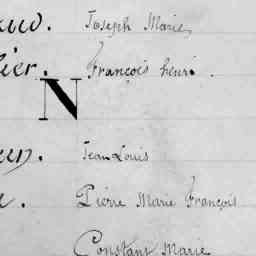 Joseph Marie
ier. François henri.
N
Jean Louis
Pierre Marie François
Constant Marie